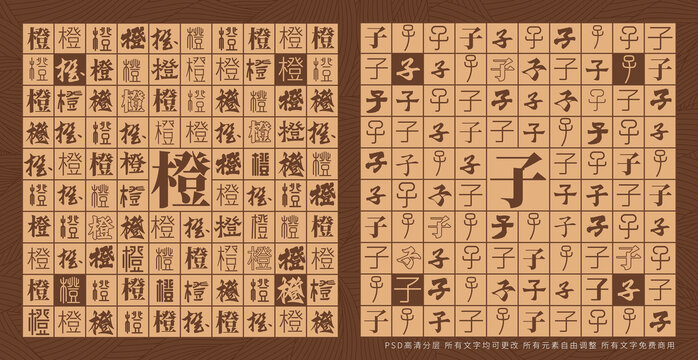 橙橙橙橙橙橙橙橙橙橙
橙橙橙橙橙橙橙橙橙橙
橙橙橙橙橙橙橙橙橙橙
橙橙橙橙橙橙橙橙橙橙
橙橙橙橙橙橙橙橙橙
橙橙橙橙橙橙橙橙
橙橙橙橙橙橙橙橙橙橙
橙橙橙橙橙橙橙橙橙橙
橙橙橙橙橙橙橙橙橙橙
橙橙橙橙橙橙橙橙橙橙
子子子子子子子子子子
子子子子子子子子子子
子子子子子子子子子子
子子子子子子子子子子
子子子子子子子子子
子子子子子子子子
子子子子子子子子子子
子子子子子子子子子子
子子子子子子子子子子
子子子子子子子子子子
PSD高清分层 所有文字均可更改 所有元素自由调整 所有文字免费商用